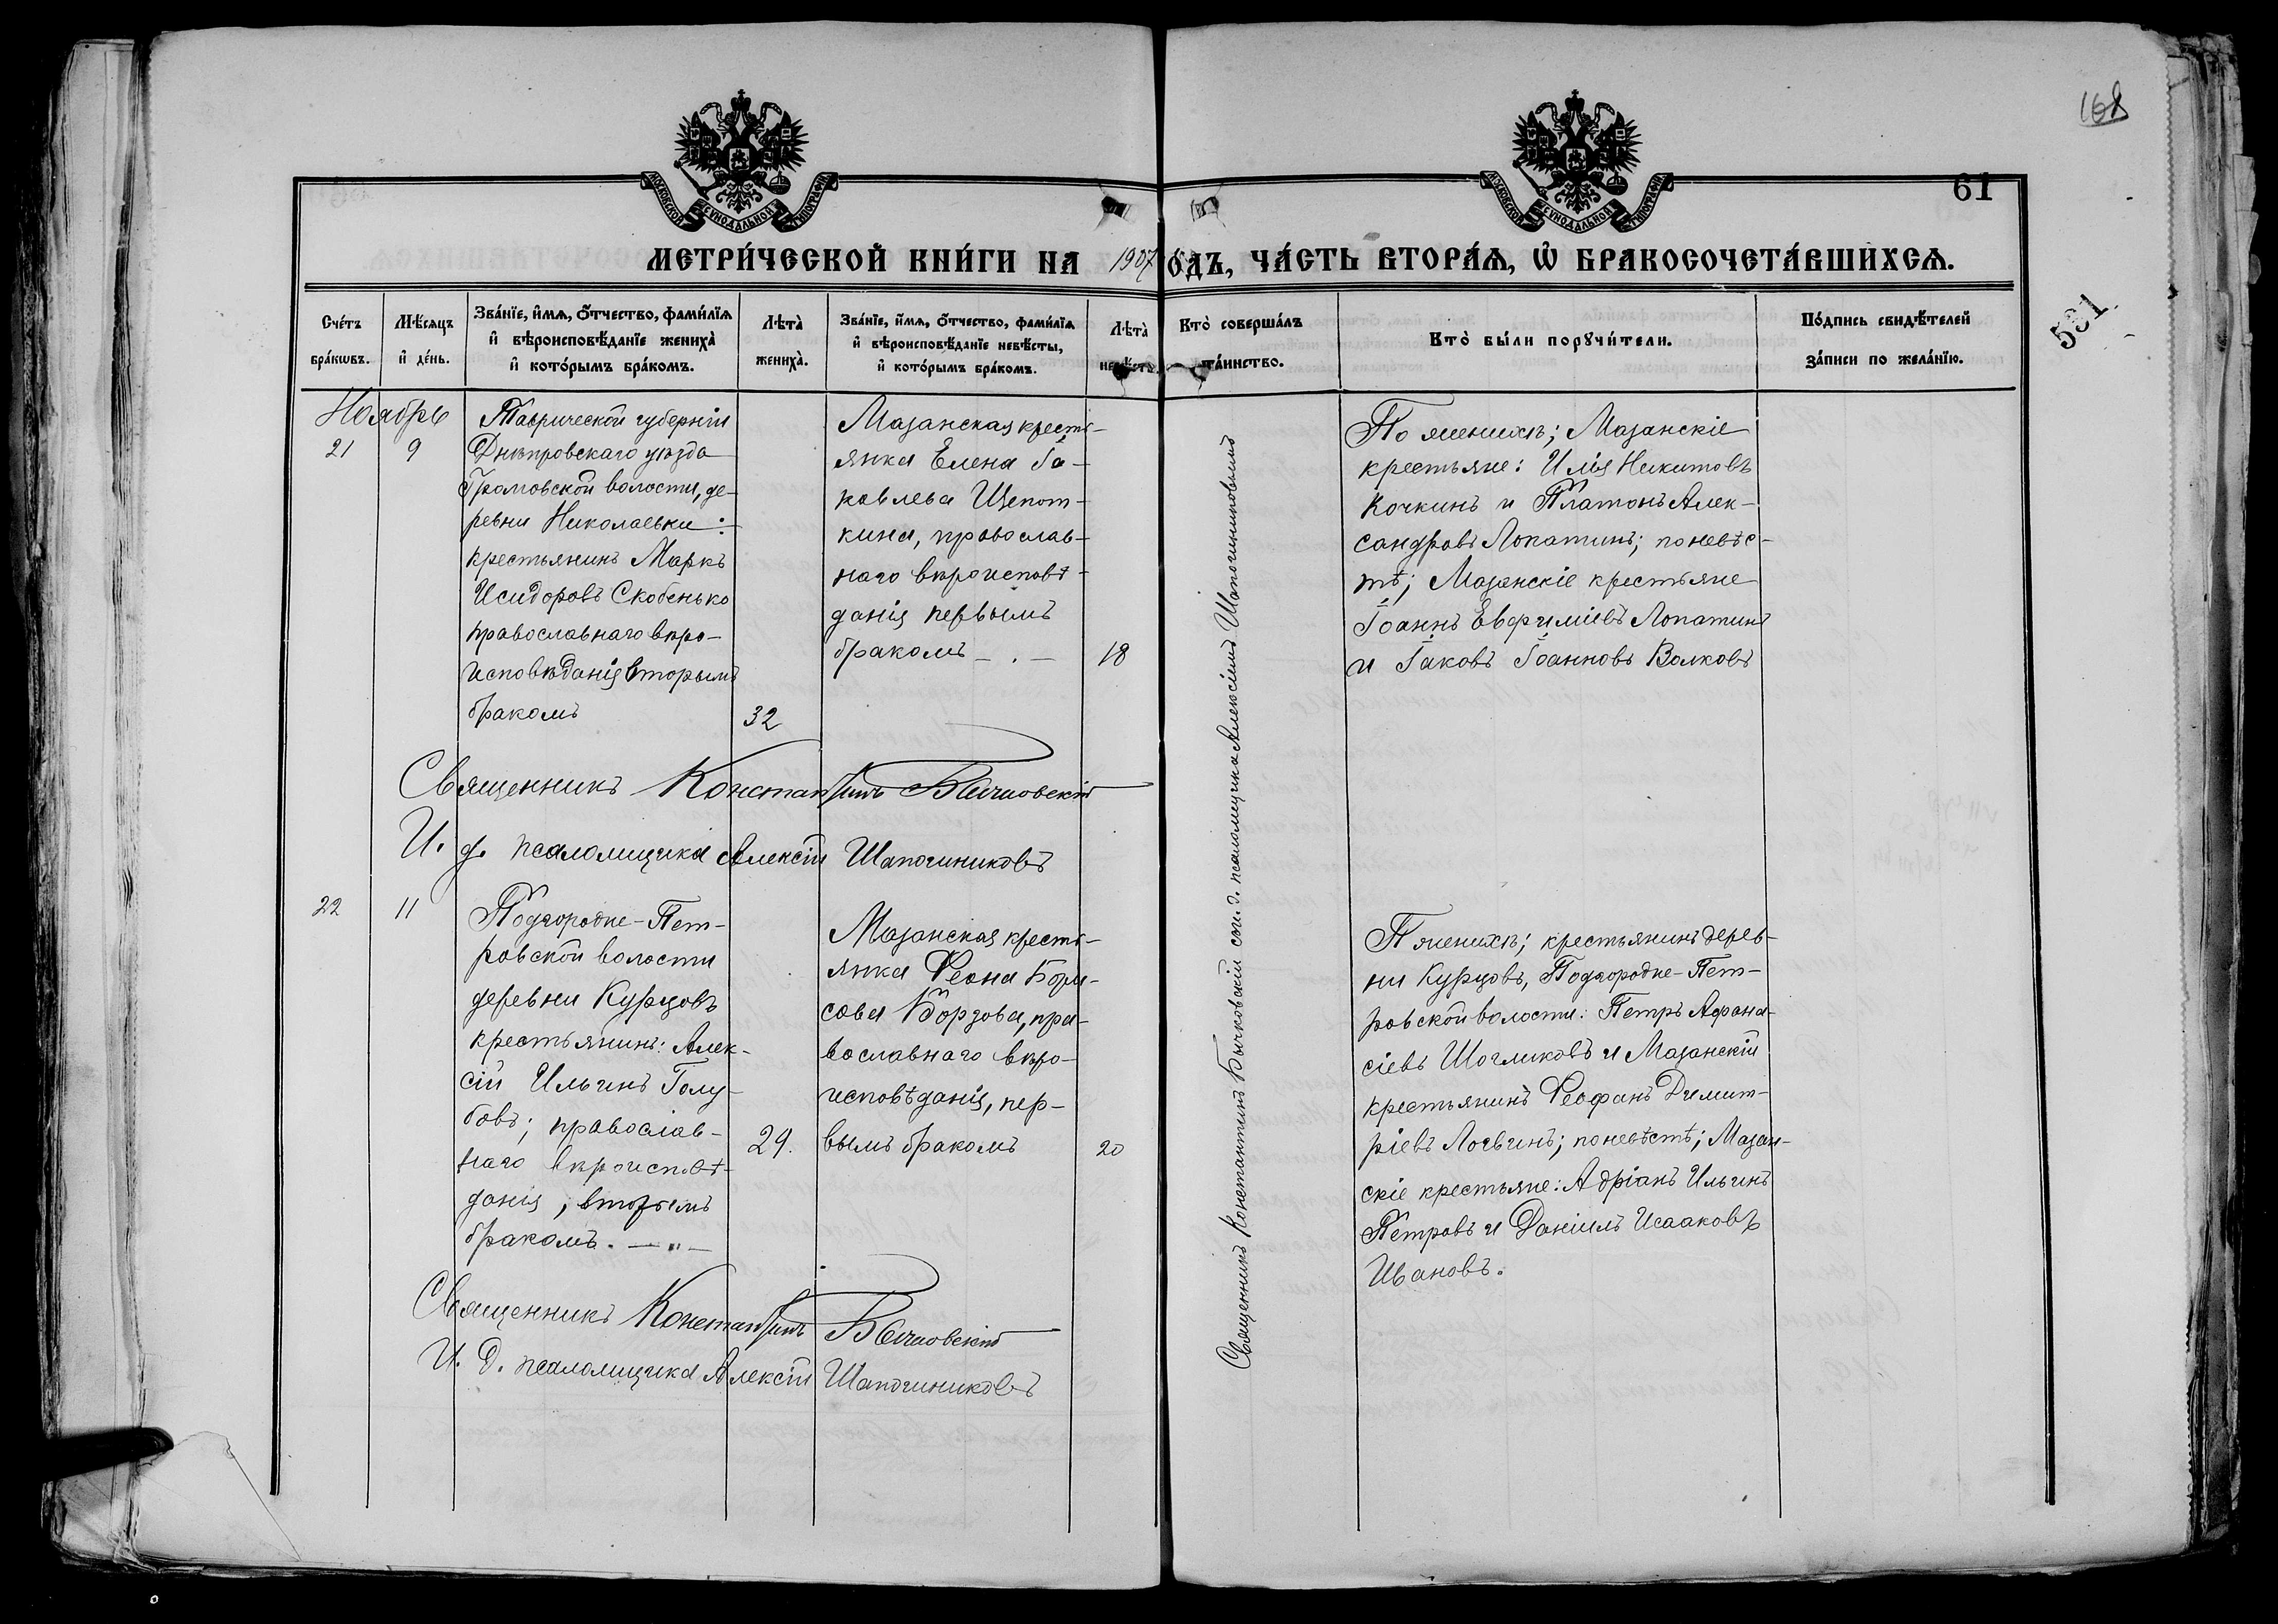 168
61
581
МОСКОВСКОЙ СѴНОДАЛЬНОЙ ТИПОГРАФІИ
МОСКОВСКОЙ СѴНОДАЛЬНОЙ ТИПОГРАФІИ
МЕТРИ́ЧЕСКОЙ КНИ́ГИ НА 1907 го́дъ, ЧА́СТЬ ВТОРА́Ѧ, Ѽ БРАКОСОЧЕТА́ВШИХСѦ.
Сче́тъ бра́кѡвъ.
Мѣ́сѧцъ и҆ де́нь.
Зва́нїе, и҆́мѧ, ѻ҆́тчество, фами́лїѧ
и҆ вѣроисповѣ́данїе жениха̀
и҆ кото́рымъ бра́комъ.
Лѣта̀ жениха̀.
Зва́нїе, и҆́мѧ, ѻ҆́тчество, фами́лїѧ
и҆ вѣроисповѣ́данїе невѣ́сты,
и҆ кото́рымъ бра́комъ.
Лѣта̀ невѣ́сты.
Кто̀ соверша́лъ та́инство.
Кто̀ бы́ли порꙋчи́тели.
По́дпись свидѣ́телей
за́писи по жела́нїю.
Ноябрь
21
9
Таврической губерніи
Днѣпровскаго уѣзда
Громовской волости, де-
ревни Николаевки:
крестьянинъ Маркъ
Исидоровъ Скобенько
православнаго вѣро-
исповѣданія вторымъ
бракомъ
32
Мазанская кресть-
янка Елена Іа-
ковлева Щепот-
кина, православ-
наго вѣроисповѣ-
данія первымъ
бракомъ — . —
18
По женихѣ; Мазанскіе
крестьяне: Илія Никитовъ
Кочкинъ и Платонъ Алек-
сандровъ Лопатинъ; по невѣс-
тѣ; Мазанскіе крестьяне
Іоаннъ Евфиміевъ Лопатинъ
и Іаковъ Іоанновъ Волковъ
Священникъ Константинъ Бычковскій
И. д. псаломщика Алексій Шапошниковъ
22
11
Подгородне-Пет-
ровской волости
деревни Курцовъ
крестьянинъ: Алек-
сій Ильинъ Голу-
бовъ; православ-
наго вѣроисповѣ-
данія, вторымъ
бракомъ. — " —
29.
Мазанская кресть-
янка Ѳеона Бори-
сова Борзова, пра-
вославнаго вѣро-
исповѣданія, пер-
вымъ бракомъ
20
П женихѣ; крестьянинъ дерев-
ни Курцовъ, Подгородне-Пет-
ровской волости: Петръ Афана-
сіевъ Шогликовъ и Мазанскій
крестьянинъ Ѳеофанъ Димит-
ріевъ Логвинъ; по невѣстѣ; Мазан-
скіе крестьяне: Адріанъ Ильинъ
Петровъ и Даніилъ Исааковъ
Ивановъ.
Священникъ Константинъ Бычковскій
И. Д. псаломщика Алексій Шапошниковъ
Священникъ Константинъ Бычковскій со и. д. псаломщика Алексіемъ Шапошниковымъ